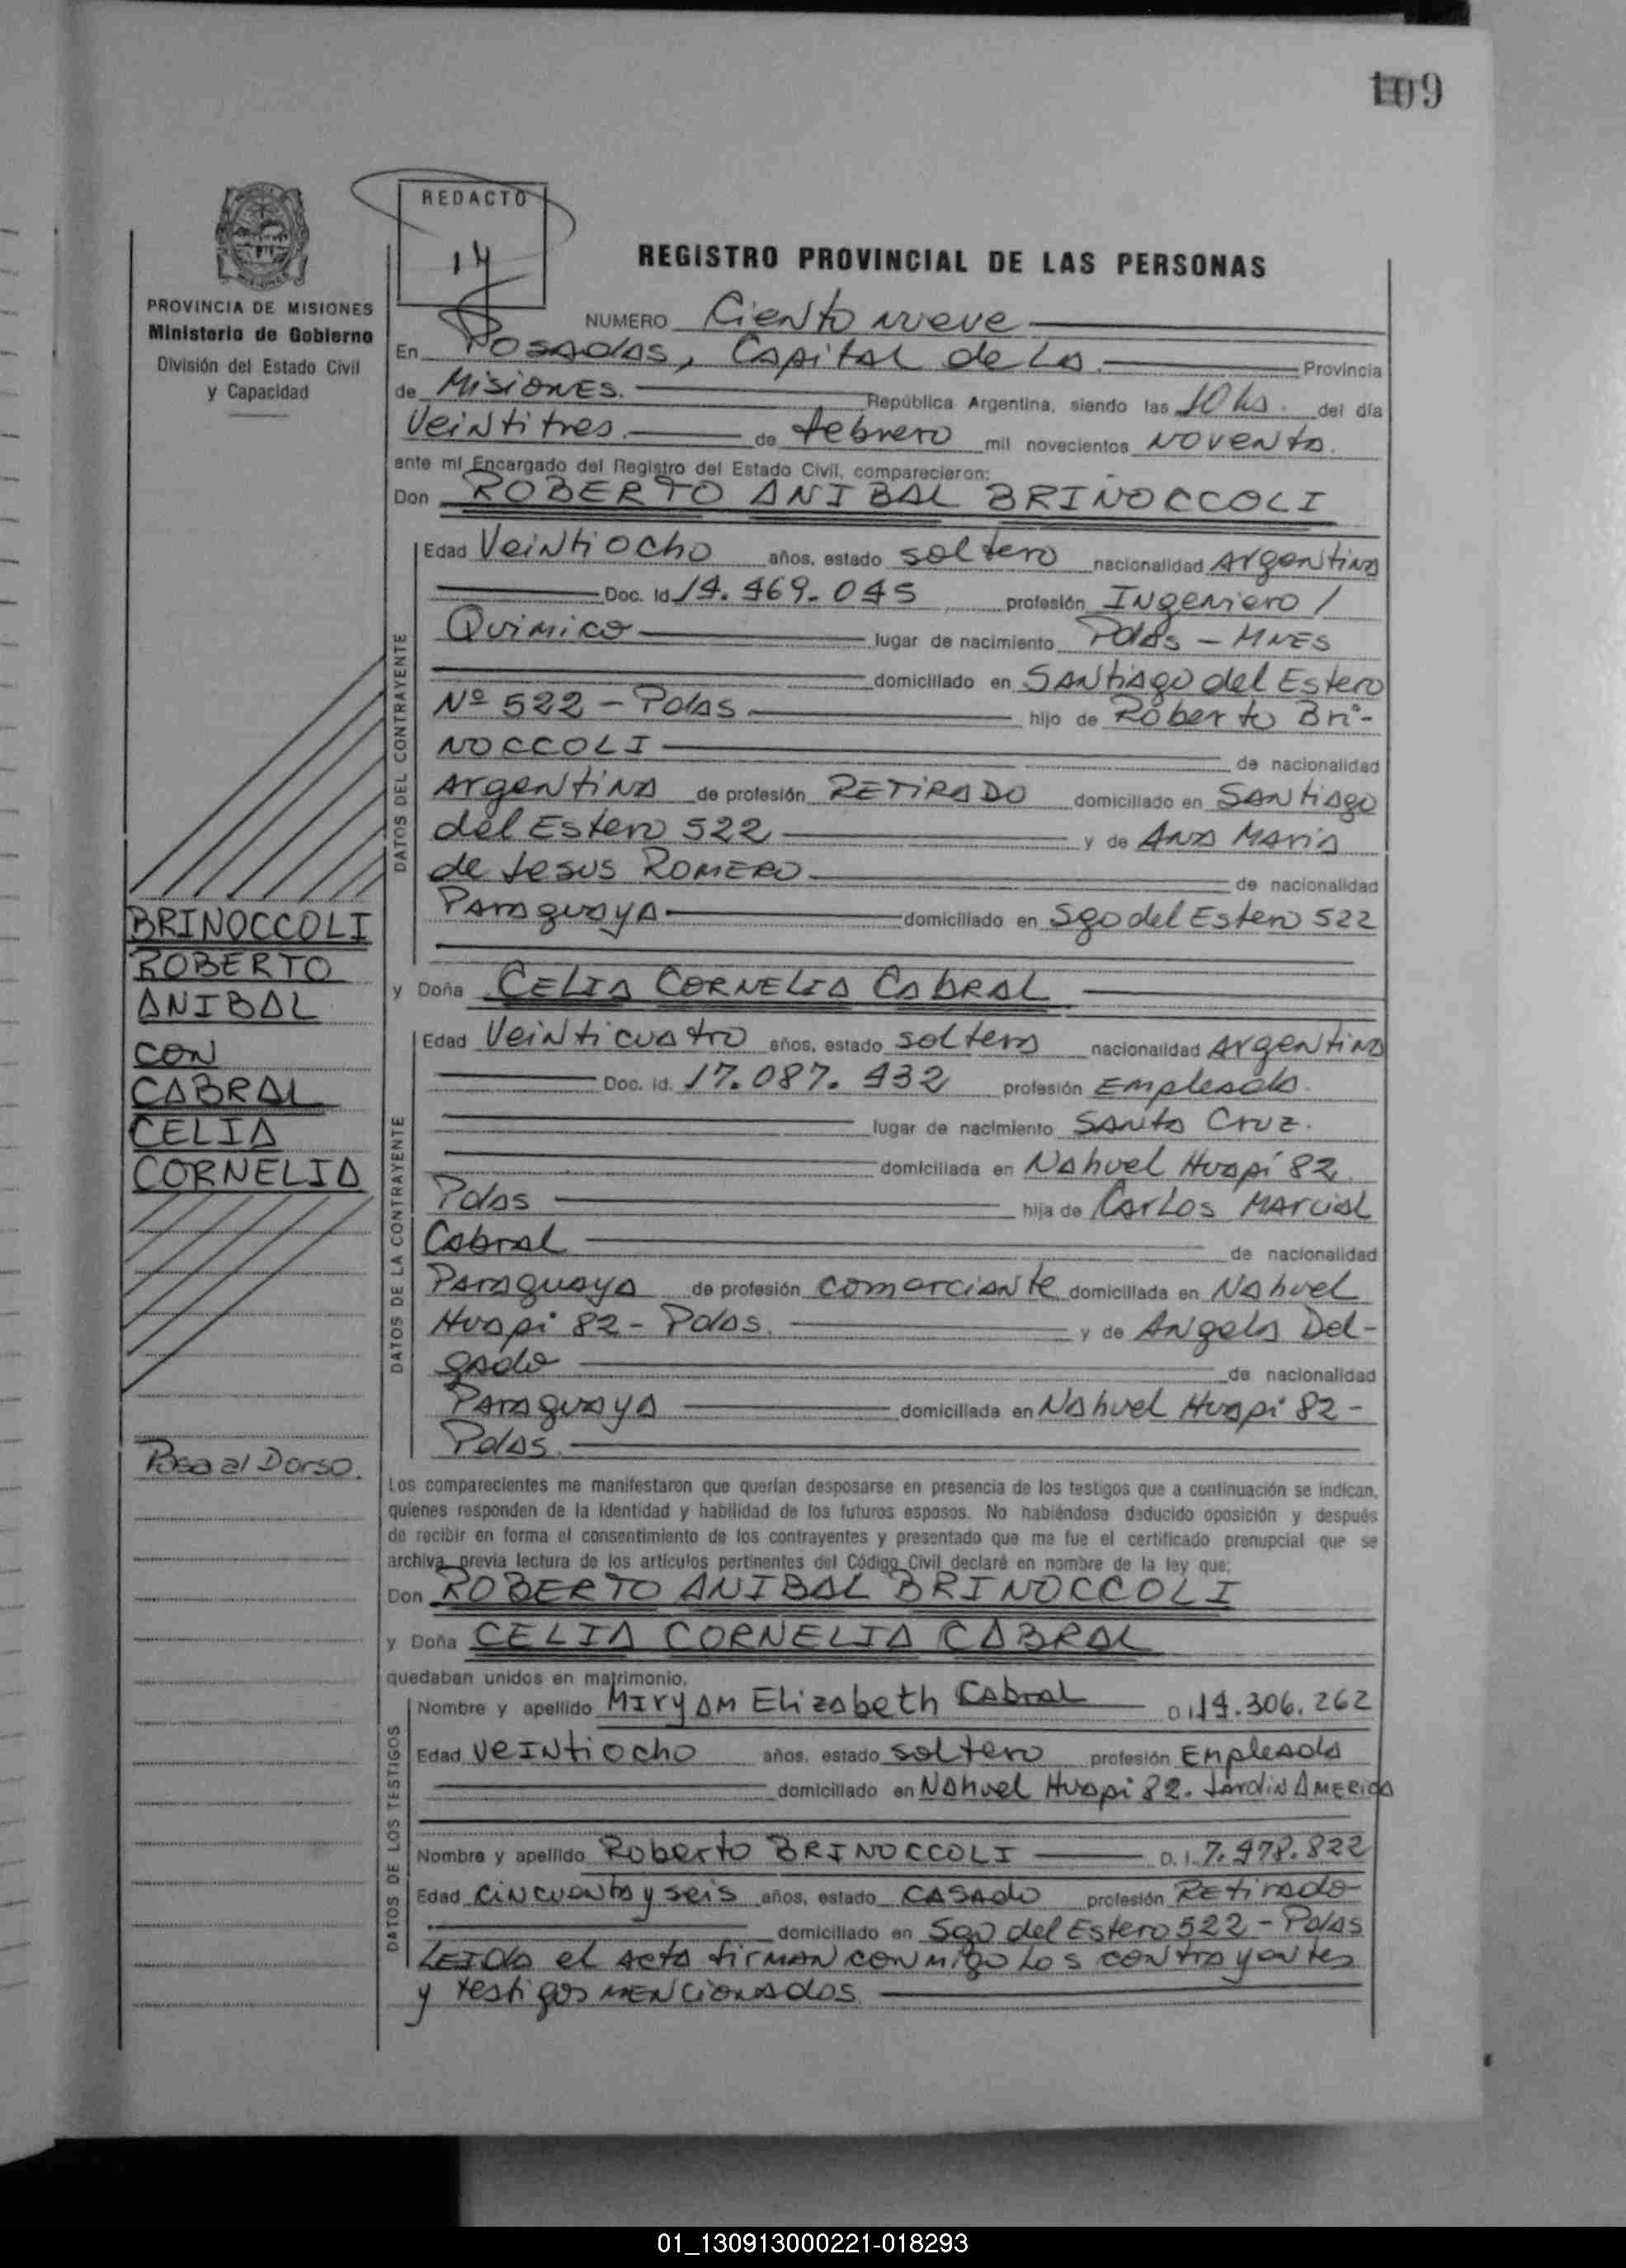 109
REDACTO
14
PROVINCIA DE MISIONES
Ministerio de Gobierno
División del Estado Civil
y Capacidad
REGISTRO PROVINCIAL DE LAS PERSONAS
NUMERO Ciento nueve
En Posadas, Capital de la Provincia
de Misiones. República Argentina, siendo las 10 hs. del día
Veintitres de febrero mil novecientos noventa.
ante mí Encargado del Registro del Estado Civil, comparecieron:
Don ROBERTO ANIBAL BRINOCCOLI
DATOS DEL CONTRAYENTE
Edad Veintiocho años, estado soltero nacionalidad Argentina
Doc. Id 14.469.045 profesión Ingeniero /
Quimico lugar de nacimiento Pdas - MNES
domiciliado en Santiago del Estero
Nº 522 - Pdas hijo de Roberto Bri-
NOCCOLI de nacionalidad
Argentina de profesión RETIRADO domiciliado en Santiago
del Estero 522 y de Ana Maria
de Jesus ROMERO de nacionalidad
Paraguaya domiciliado en Sgo del Estero 522
BRINOCCOLI
ROBERTO
ANIBAL
CON
CABRAL
CELIA
CORNELIA
y Doña CELIA CORNELIA CABRAL
DATOS DE LA CONTRAYENTE
Edad Veinticuatro años, estado soltera nacionalidad Argentina
Doc. Id. 17.087.432 profesión Empleada.
lugar de nacimiento Santa Cruz.
domiciliada en Nahuel Huapí 82.
Pdas hija de Carlos Marcial
Cabral de nacionalidad
Paraguaya de profesión comerciante domiciliada en Nahuel
Huapi 82 - Pdas. y de Angela Del-
gado de nacionalidad
Paraguaya domiciliada en Nahuel Huapi 82 -
Pdas.
Pasa al Dorso.
Los comparecientes me manifestaron que querían desposarse en presencia de los testigos que a continuación se indican,
quienes responden de la identidad y habilidad de los futuros esposos. No habiéndose deducido oposición y después
de recibir en forma el consentimiento de los contrayentes y presentado que me fue el certificado prenupcial que se
archiva previa lectura de los artículos pertinentes del Código Civil declaré en nombre de la ley que;
Don ROBERTO ANIBAL BRINOCCOLI
y Doña CELIA CORNELIA CABRAL
quedaban unidos en matrimonio.
DATOS DE LOS TESTIGOS
Nombre y apellido Miryam Elizabeth Cabral D.I. 14.306.262
Edad Veintiocho años, estado soltero profesión Empleada
domiciliado en Nahuel Huapi 82. Jardin AMERICA
Nombre y apellido Roberto BRINOCCOLI D.I. 7.478.822
Edad cincuenta y seis años, estado casado profesión Retirado
domiciliado en Sgo del Estero 522 - Pdas
LEIDA el acta firman conmigo los contrayentes
y testigos mencionados
01_130913000221-018293